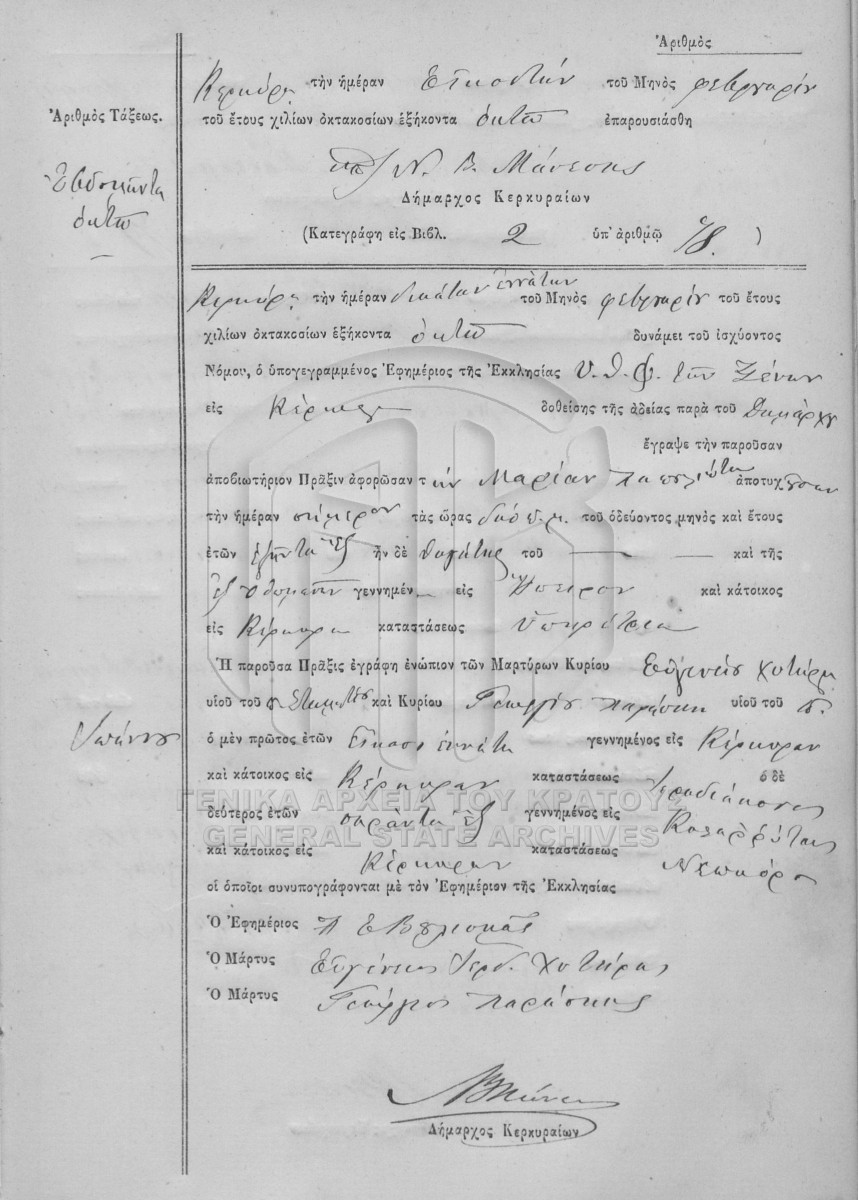 Ἀριθμὸς
Κερκύρᾳ τὴν ἡμέραν Εἰκοστὴν τοῦ Μηνὸς φεβρουαρίου
Ἀριθμὸς Τάξεως.
τοῦ ἔτους χιλίων ὀκτακοσίων ἑξήκοντα ὀκτὼ ἐπαρουσιάσθη
Ἑβδομῆντα
ὀκτὼ
Ν. Β. Μάνεσης
Δήμαρχος Κερκυραίων
(Κατεγράφη εἰς Βιβλ. 2 ὑπ' ἀριθμῷ 78. )
Κερκύρᾳ τὴν ἡμέραν δεκάτην ἐννάτην τοῦ Μηνὸς φεβρουαρίου τοῦ ἔτους
χιλίων ὀκτακοσίων ἑξήκοντα ὀκτὼ δυνάμει τοῦ ἰσχύοντος
Νόμου, ὁ ὑπογεγραμμένος Ἐφημέριος τῆς Ἐκκλησίας Υ. Θ. Φ. τῶν Ξένων
εἰς Κέρκυραν δοθείσης τῆς ἀδείας παρὰ τοῦ Δημάρχου
ἔγραψε τὴν παροῦσαν
ἀποβιωτήριον Πρᾶξιν ἀφορῶσαν τὴν Μαρίαν ἀποτυχ
τὴν ἡμέραν σήμερον τὰς ὥρας δύο π.μ. τοῦ ὁδεύοντος μηνὸς καὶ ἔτους
ἐτῶν ἑξῆντα ἓξ ἦν δὲ θυγάτης τοῦ — — καὶ τῆς
ἐξ Ὀθωμανῶν γεννημέν εἰς Ἤπειρον καὶ κάτοικος
εἰς Κέρκυρα καταστάσεως ὑπηρέτρια
Ἡ παροῦσα Πρᾶξις ἐγράφη ἐνώπιον τῶν Μαρτύρων Κυρίου Εὐγενίου Χυτήρη
υἱοῦ τοῦ καὶ Κυρίου Γεωργίου Παράσκη υἱοῦ τοῦ
Ἰωάννου
ὁ μὲν πρῶτος ἐτῶν εἴκοσι ἐννέα γεννημένος εἰς Κέρκυραν
καὶ κάτοικος εἰς Κέρκυραν καταστάσεως Ἱεροδιάκονος ὁ δὲ
δεύτερος ἐτῶν σαράντα ἓξ γεννημένος εἰς Καλαῤῥύτας
καὶ κάτοικος εἰς Κέρκυραν καταστάσεως Νεωκόρος
οἱ ὁποῖοι συνυπογράφονται μὲ τὸν Ἐφημέριον τῆς Ἐκκλησίας
Ὁ Ἐφημέριος
Ὁ Μάρτυς Εὐγένιος Ἱερδ. Χυτήρης
Ὁ Μάρτυς Γεώργιος Παράσκης
Δήμαρχος Κερκυραίων
ΓΕΝΙΚΑ ΑΡΧΕΙΑ ΤΟΥ ΚΡΑΤΟΥΣ
GENERAL STATE ARCHIVES